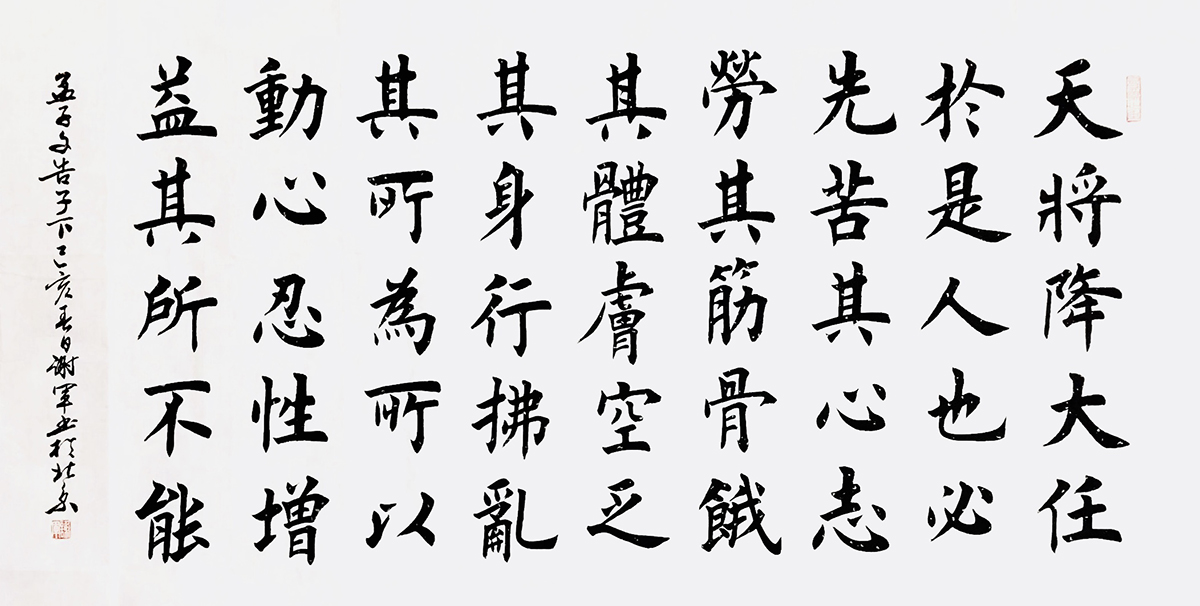 天將降大任
於是人也必
先苦其心志
勞其筋骨餓
其體膚空乏
其身行拂亂
其所為所以
動心忍性增
益其所不能
孟子文告子下己亥春日謝軍書於北京